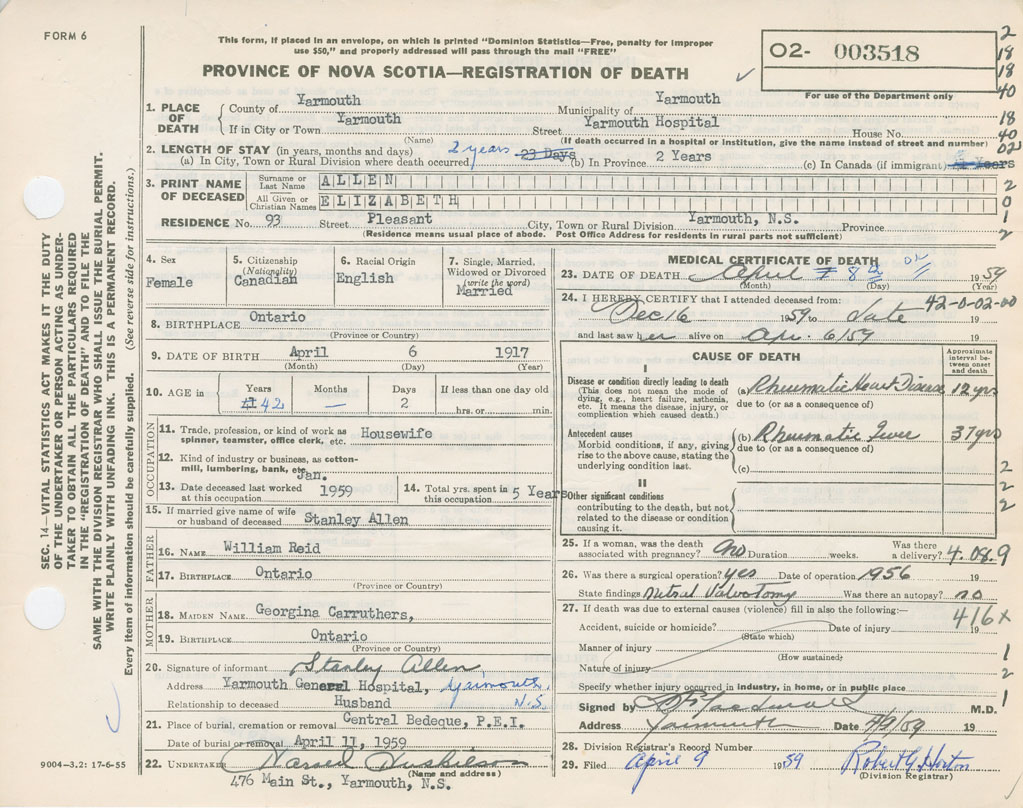 FORM 6
This form, if placed in an envelope, on which is printed "Dominion Statistics—Free, penalty for improper
use $50," and properly addressed will pass through the mail "FREE"
PROVINCE OF NOVA SCOTIA—REGISTRATION OF DEATH
O2- 003518
For use of the Department only
2
18
18
40
18
40
02
2
0
1
2
SEC. 14—VITAL STATISTICS ACT MAKES IT THE DUTY
OF THE UNDERTAKER OR PERSON ACTING AS UNDER-
TAKER TO OBTAIN ALL THE PARTICULARS REQUIRED
IN THE "REGISTRATION OF DEATH" AND TO FILE THE
SAME WITH THE DIVISION REGISTRAR WHO SHALL ISSUE THE BURIAL PERMIT.
WRITE PLAINLY WITH UNFADING INK. THIS IS A PERMANENT RECORD.
Every item of information should be carefully supplied. (See reverse side for instructions.)
1. PLACE OF DEATH
County of Yarmouth Municipality of Yarmouth
If in City or Town Yarmouth Street Yarmouth Hospital House No.
(Name) (If death occurred in a hospital or institution, give the name instead of street and number)
2. LENGTH OF STAY (in years, months and days)
(a) In City, Town or Rural Division where death occurred 2 years 23 Days (b) In Province 2 Years (c) In Canada (if immigrant) Years
3. PRINT NAME OF DECEASED
Surname or Last Name ALLEN
All Given or Christian Names ELIZABETH
RESIDENCE No. 93 Street Pleasant City, Town or Rural Division Yarmouth, N.S. Province
(Residence means usual place of abode. Post Office Address for residents in rural parts not sufficient)
4. Sex
Female
5. Citizenship
(Nationality)
Canadian
6. Racial Origin
English
7. Single, Married,
Widowed or Divorced
(write the word)
Married
8. BIRTHPLACE Ontario
(Province or Country)
9. DATE OF BIRTH April 6 1917
(Month) (Day) (Year)
10. AGE in
Years 42
Months —
Days 2
If less than one day old
hrs. or min.
OCCUPATION
11. Trade, profession, or kind of work as
spinner, teamster, office clerk, etc. Housewife
12. Kind of industry or business, as cotton-
mill, lumbering, bank, etc.
13. Date deceased last worked
at this occupation Jan. 1959
14. Total yrs. spent in
this occupation 5 Years
15. If married give name of wife
or husband of deceased Stanley Allen
FATHER
16. NAME William Reid
17. BIRTHPLACE Ontario
(Province or Country)
MOTHER
18. MAIDEN NAME Georgina Carruthers,
19. BIRTHPLACE Ontario
(Province or Country)
20. Signature of informant Stanley Allen
Address Yarmouth General Hospital, Yarmouth, N.S.
Relationship to deceased Husband
21. Place of burial, cremation or removal Central Bedeque, P.E.I.
Date of burial or removal April 11, 1959
22. UNDERTAKER
(Name and address)
476 Main St., Yarmouth, N.S.
9004-3.2: 17-6-55
MEDICAL CERTIFICATE OF DEATH
23. DATE OF DEATH April 7 8 1959
(Month) (Day) (Year)
24. I HEREBY CERTIFY that I attended deceased from:
42-0-02-00
Dec 16 1959 to date 19
and last saw her alive on Apr. 6/59 19
CAUSE OF DEATH
Approximate interval between onset and death
I
Disease or condition directly leading to death
(This does not mean the mode of
dying, e.g., heart failure, asthenia,
etc. It means the disease, injury, or
complication which caused death.)
(a) Rheumatic Heart Disease 12 yrs
due to (or as a consequence of)
Antecedent causes
Morbid conditions, if any, giving
rise to the above cause, stating the
underlying condition last.
(b) Rheumatic Fever 37 yrs
due to (or as a consequence of)
(c)
2
2
2
II
Other significant conditions
contributing to the death, but not
related to the disease or condition
causing it.
25. If a woman, was the death
associated with pregnancy? no Duration weeks. Was there
a delivery? 4.08.9
26. Was there a surgical operation? yes Date of operation 1956 19
State findings Mitral Valvotomy Was there an autopsy? no
27. If death was due to external causes (violence) fill in also the following:—
416x
Accident, suicide or homicide? Date of injury 19
(State which)
Manner of injury 1
(How sustained)
Nature of injury 2
Specify whether injury occurred in industry, in home, or in public place
1
Signed by M.D.
Address Yarmouth Date 4/9/59 19
28. Division Registrar's Record Number
29. Filed April 9 1959 Robert G Horton
(Division Registrar)